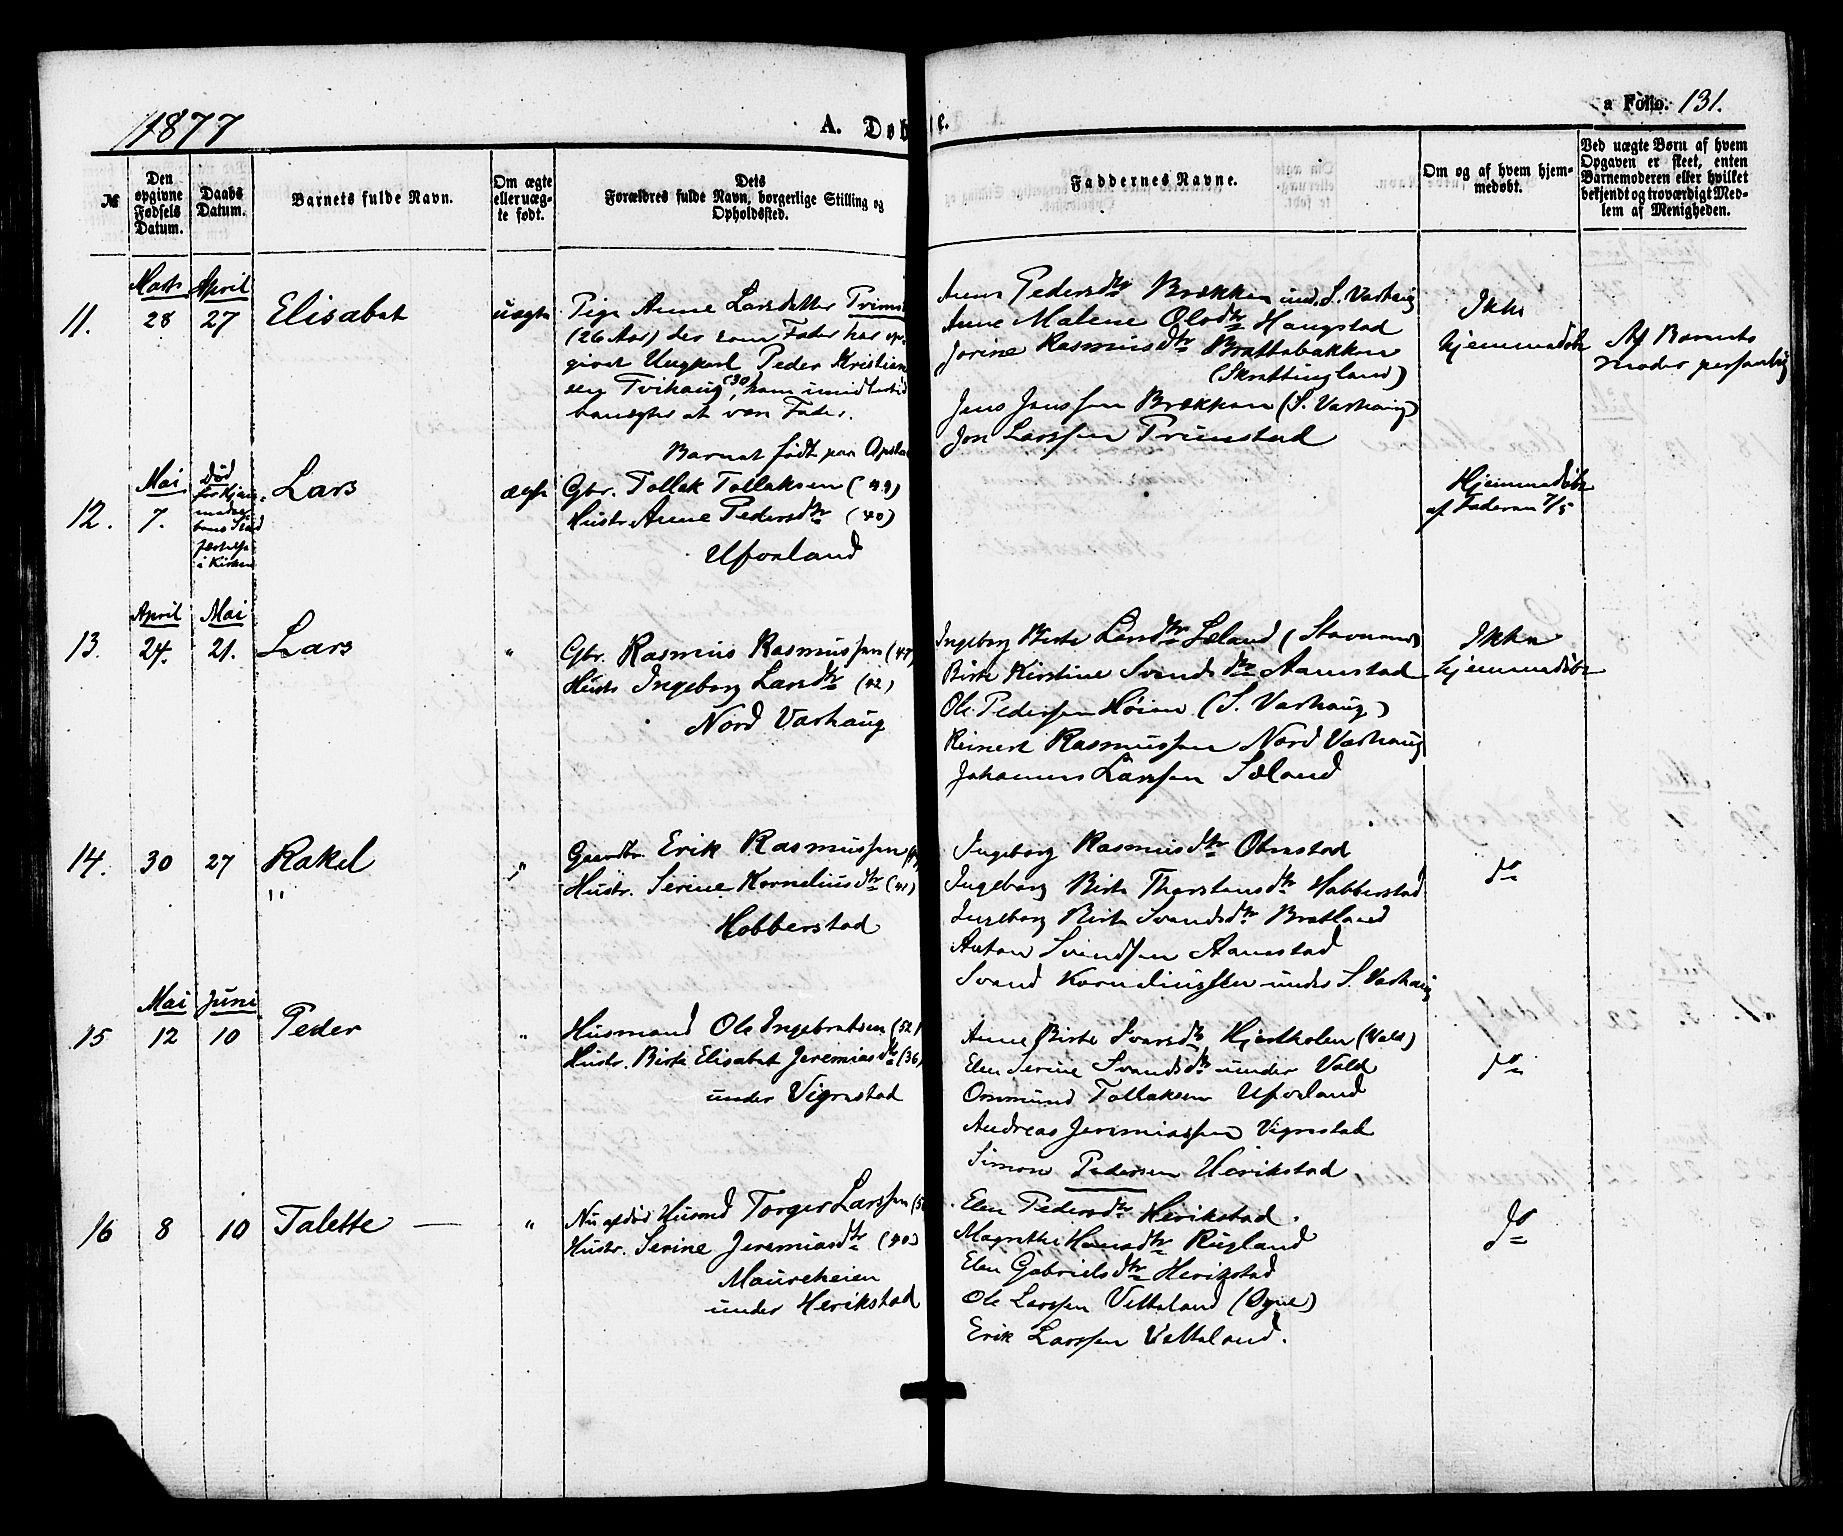 1877
A. Døbte.
a Folio. 131.
№
Den opgivne Fødsels Datum.
Daabs Datum.
Barnets fulde Navn.
Om ægte eller uægte født.
Dets Forældres fulde Navn, borgerlige Stilling og Opholdssted.
Faddernes Navne.
Om og af hvem hjemmedøbt.
Ved uægte Børn af hvem Opgaven er skeet, enten Barnemoderen eller hvilket bekjendt og troværdigt Medlem af Menigheden.
11.
Marts
28
April
27
Elisabet
uægte
Pige Anne Larsdatter
(26 Aar) der som Fader har op-
givet Ungkarl Peder Kristian
sen Tvihaug (30), han imidlertid
benægter at være Fader.
Barnet født paa
Anne Pedersdtr Brekken und. S. Varhaug
Anne Malene Olsdtr Haugstad
Jorine Rasmusdtr Brattebakken
(Skrettingland)
Jens Jenssen Brekken (S. Varhaug)
Jon Larssen Primstad
Ikke
hjemmedøbt
Af Barnets
moder personlig
12.
Mai
7.
Død
før Hjem-
medaa-
bens Stad
fæstelse
i Kirken
Lars
ægte
Gbr. Tollak Tollaksen (44)
Hustr. Anne Pedersdtr (40)
Ueland
Hjemmedøbt
af Faderen 7/5
13.
April
24.
Mai
21.
Lars
"
Gbr. Rasmus Rasmussen (47)
Hustr. Ingeborg Larsdtr (42)
Nord Varhaug
Ingeborg Birte Larsdtr Sæland
Birte Kirstine Svendsdtr Aanestad
Ole Pedersen Høien (S. Varhaug)
Reinert Rasmussen Nord Varhaug
Johannes Larssen Sæland
Ikke
hjemmedøbt
14.
30
27
Rakel
"
"
Gaardbr. Erik Rasmussen
Hustr. Serine Korneliusdtr (41)
Hobberstad
Ingeborg Rasmusdtr Obrestad
Ingeborg Birte Thorstensdtr Hobberstad
Ingeborg Birte Svendsdtr Bratland
Anton Svendsen Aanestad
Svend Korneliussen under S. Varhaug
do
15
Mai
12
Juni
10
Peder
"
Husmand Ole Ingebretsen (52)
Hustr. Birte Elisabet Jeremiasdtr (36)
under Vigrestad
Anne Birte Ivarsdtr Hjertholen
Elen Serine Svendsdtr under Vold
Osmund Tollaksen Ueland
Andreas Jeremiassen Vigrestad
Simon Pedersen Herikstad
do
16
8
10
Talette
"
Nu afdød Husmd Torger Larssen
Hustr. Serine Jeremiasdtr (40)
Maureheien
under Herikstad
Elen Pedersdtr Herikstad.
Magrethe Hansdtr Rugland
Elen Gabrielsdtr Herikstad
Ole Larssen Vetteland (Ogne)
Erik Larssen Vetteland.
do